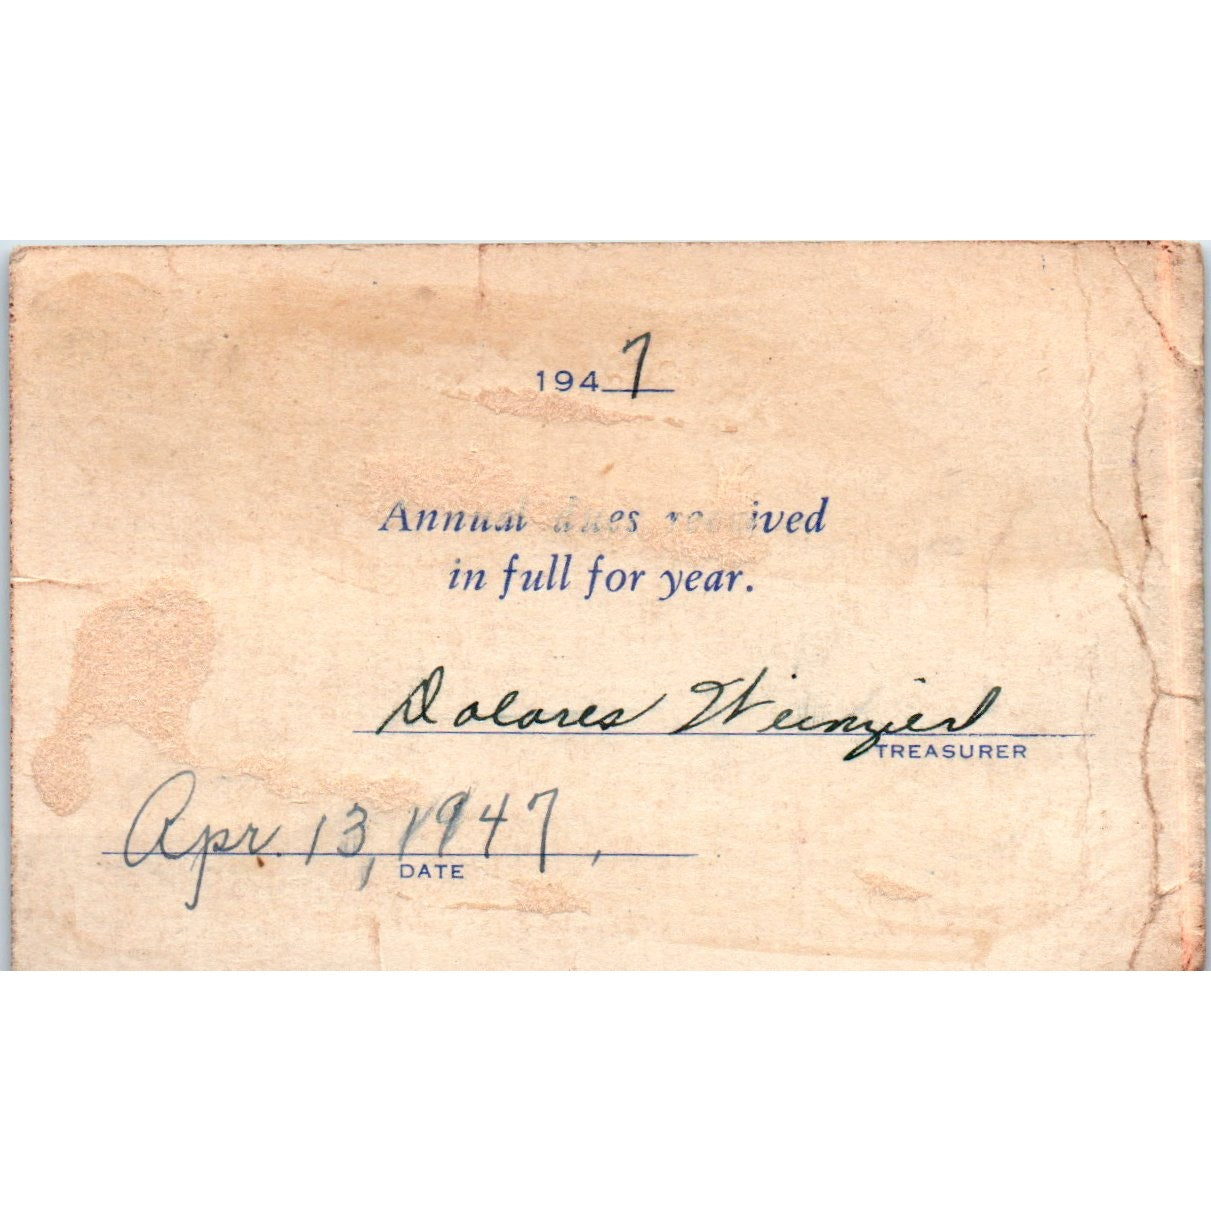 1947
Annual dues received
in full for year.
Dolores Weinzierl
TREASURER
Apr. 13, 1947,
DATE